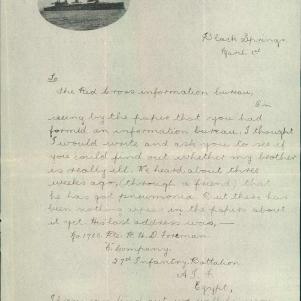 Black Springs
April 1st
To
The Red Cross information bureau,
Sir
seeing by the papers that you had
formed an information bureau, I thought
I would write and ask you to see if
you could find out whether my brother
is really ill. We heard, about three
weeks ago, (through a friend) that
he has got pneumonia. But there has
been nothing in the papers about
it yet. His last address was, —
Pte R. H. D. Foreman
C Company
27th Infantry Battalion
A. I. F.
Egypt,